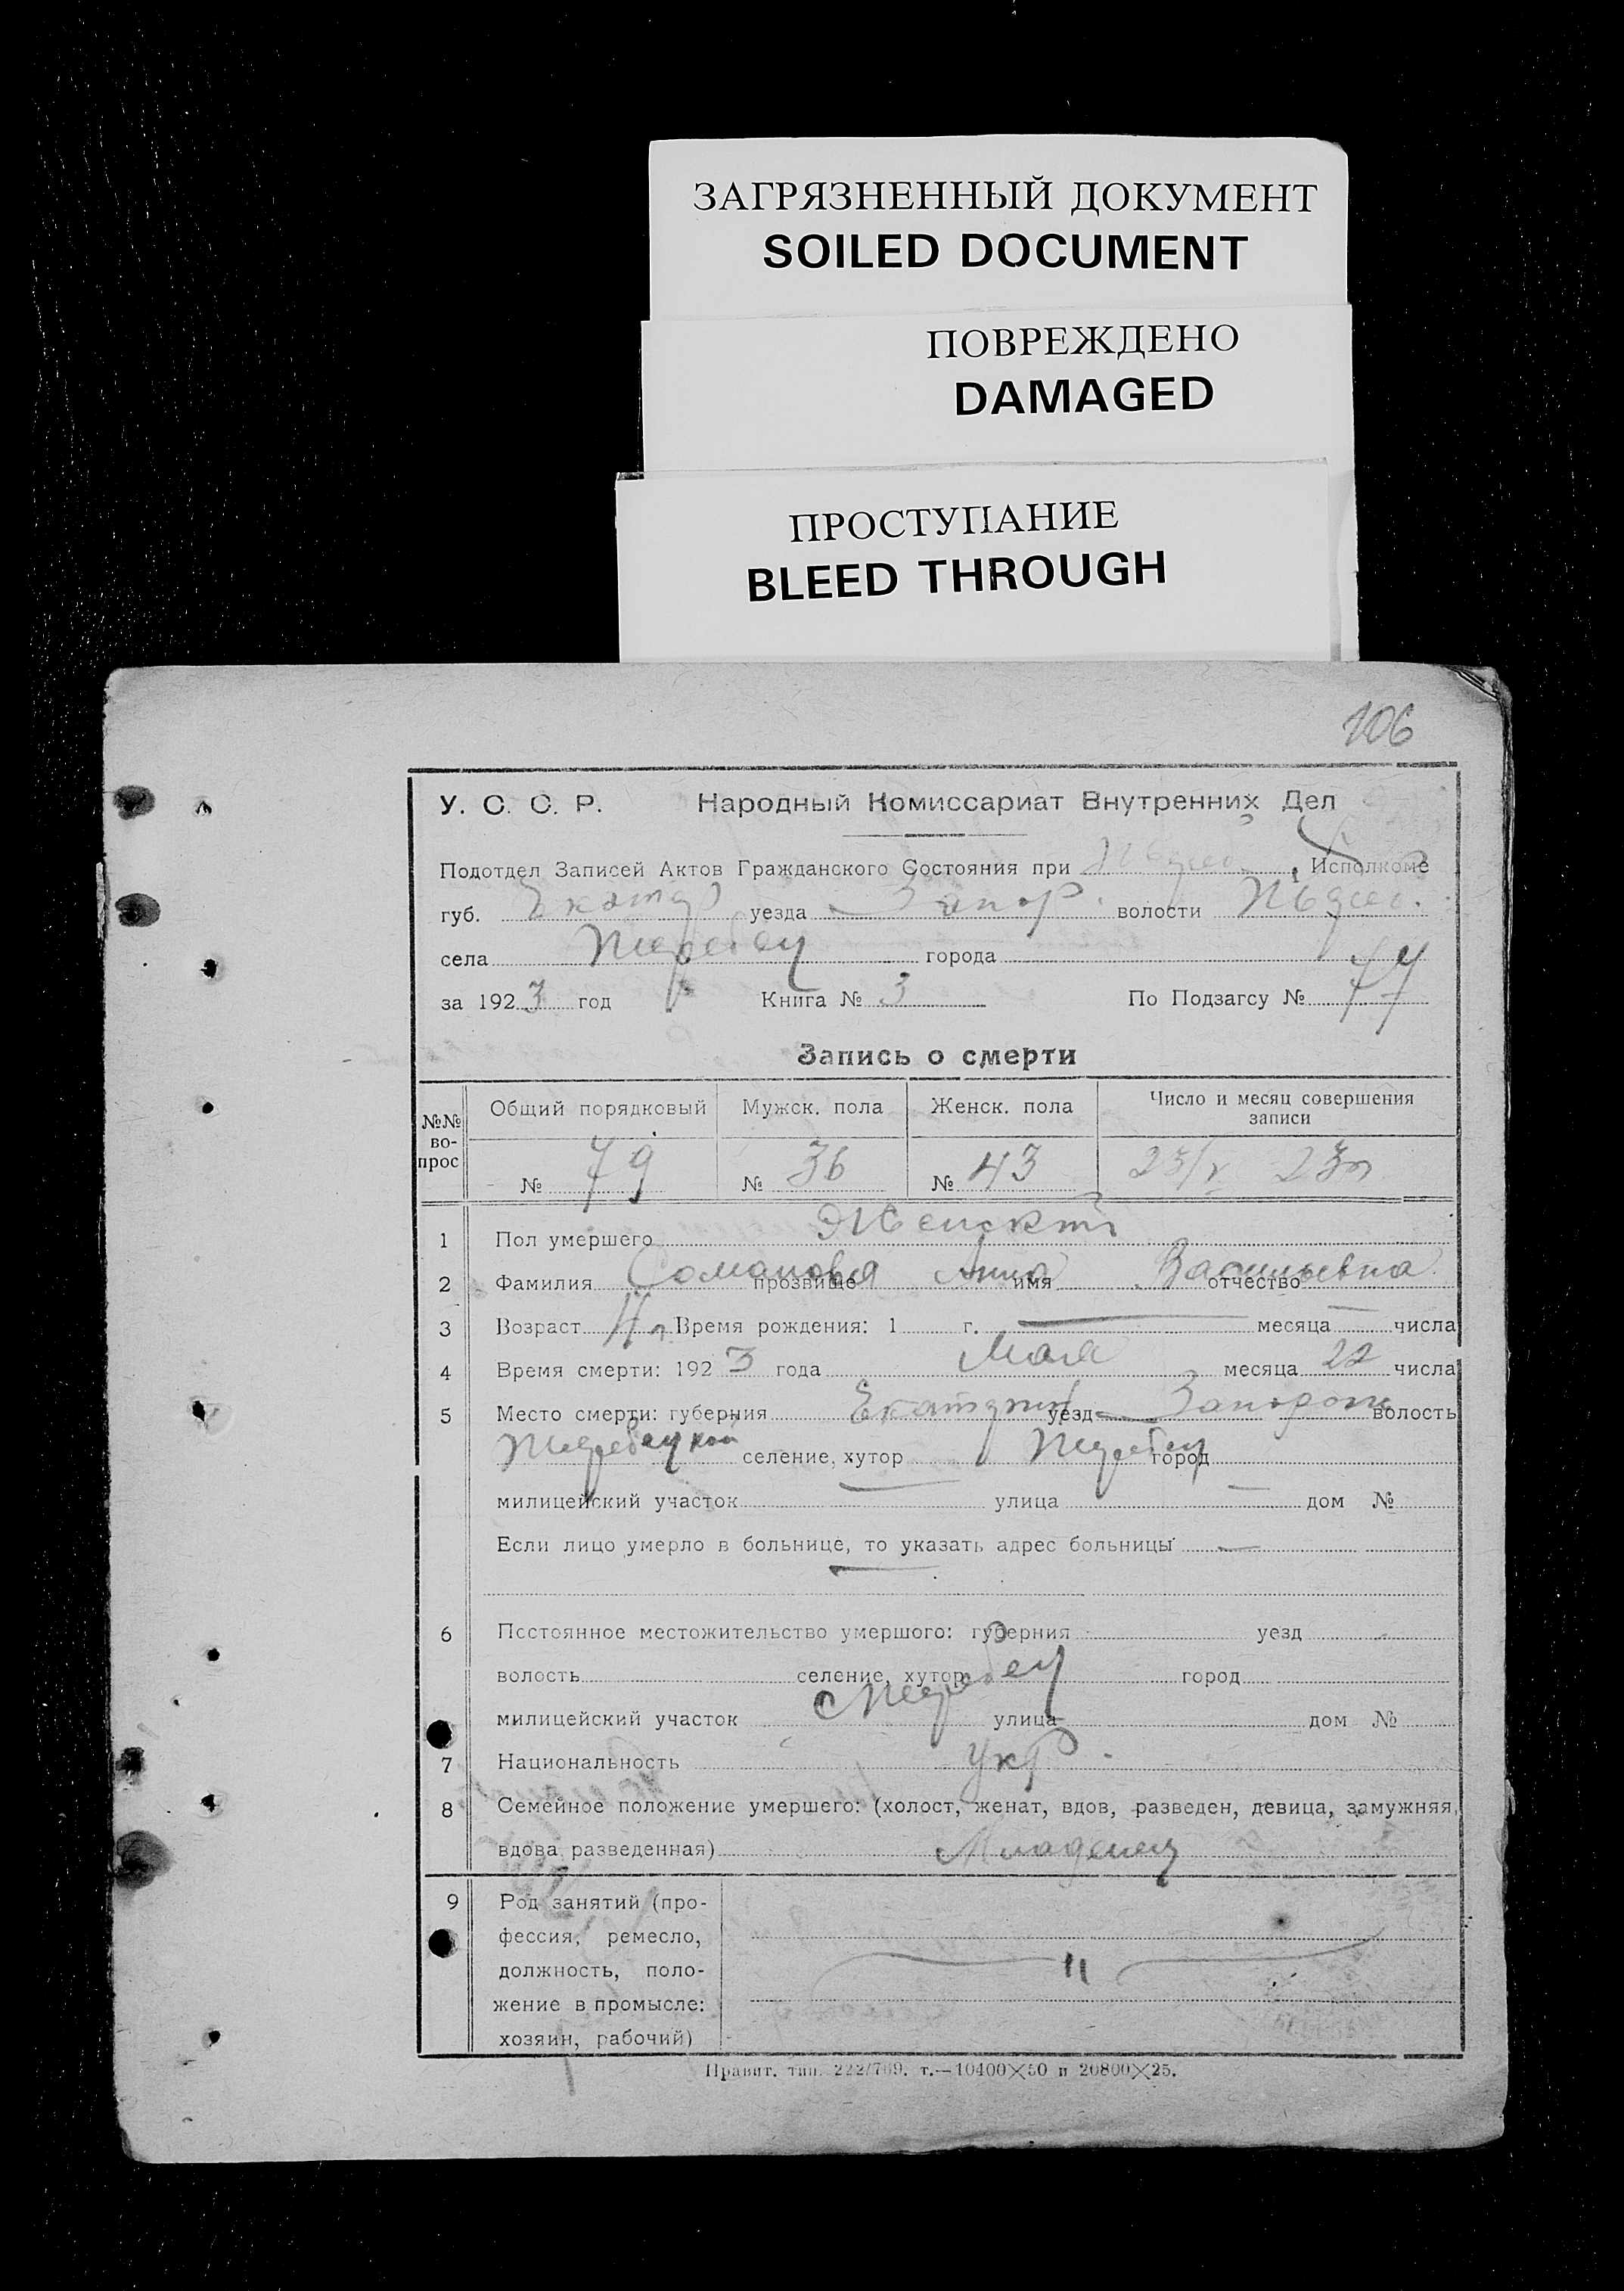 ЗАГРЯЗНЕННЫЙ ДОКУМЕНТ
SOILED DOCUMENT
ПОВРЕЖДЕНО
DAMAGED
ПРОСТУПАНИЕ
BLEED THROUGH
106
У. С. С. Р. Народный Комиссариат Внутренних Дел
Подотдел Записей Актов Гражданского Состояния при Исполкоме
губ. Екатер уезда Запор. волости
села Жеребец города
за 1923 год Книга № 3 По Подзагсу № 77
Запись о смерти
№№ во-прос Общий порядковый Мужск. пола Женск. пола Число и месяц совершения записи
№ 79 № 36 № 43 23/V 23г
1 Пол умершего Женский
2 Фамилия прозвище Анна имя Васильевна отчество
3 Возраст Время рождения: 1 г. — месяца — числа
4 Время смерти: 1923 года Мая месяца 22 числа
5 Место смерти: губерния Екатерин уезд Запорож волость
Жеребецкой селение, хутор Жеребец город
милицейский участок — улица — дом №
Если лицо умерло в больнице, то указать адрес больницы —
6 Постоянное местожительство умершого: губерния уезд
волость селение, хутор с Жеребец город
милицейский участок улица дом №
7 Национальность укр.
8 Семейное положение умершего: (холост, женат, вдов, разведен, девица, замужняя,
вдова разведенная) Младенец
9 Род занятий (про-
фессия, ремесло,
должность, поло-
— " —
жение в промысле:
хозяин, рабочий)
Правит. тип. 222/769. т.—10400×50 и 20800×25.